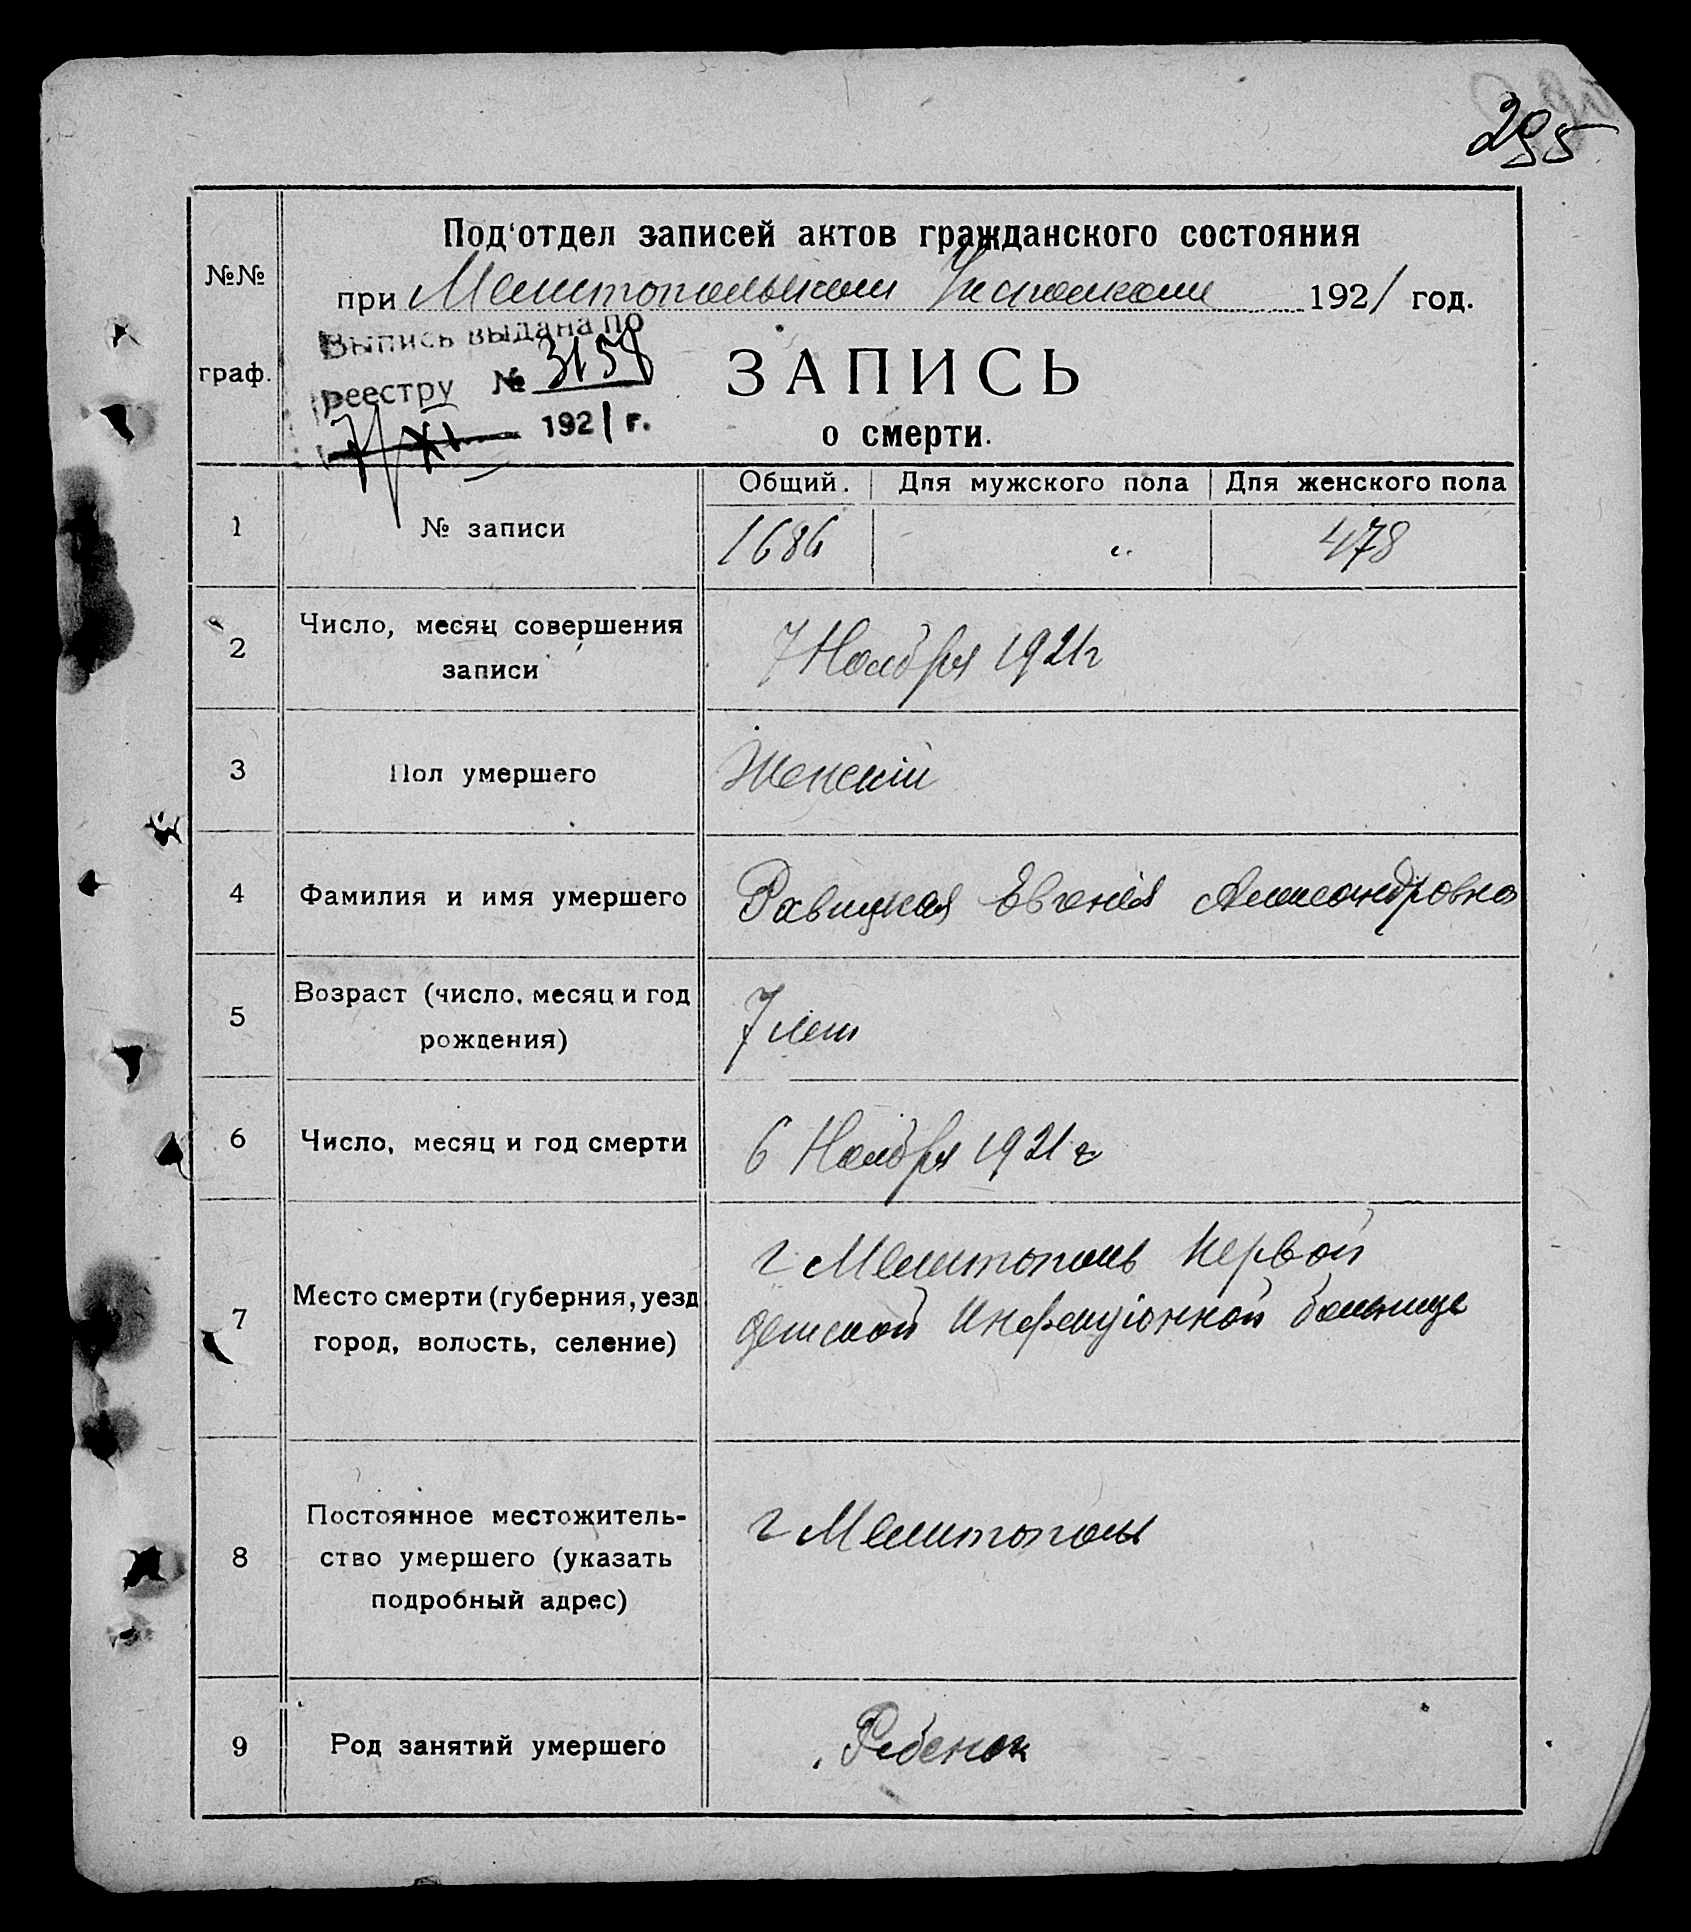 295
Под'отдел записей актов гражданского состояния
при Мелитопольском Исполкоме 1921 год.
№№
граф.
Выпись выдана по
реестру № 3158
7/XI 1921 г.
ЗАПИСЬ
о смерти.
Общий. Для мужского пола Для женского пола
1 № записи 1686 " 478
2 Число, месяц совершения
записи
7 Ноября 1921 г
3 Пол умершего Женскій
4 Фамилия и имя умершего Равицкая Евгенія Александровна
5 Возраст (число, месяц и год
рождения)
7 лет
6 Число, месяц и год смерти 6 Ноября 1921 г
7 Место смерти (губерния, уезд
город, волость, селение)
г Мелитополь Первой
детской Инфекціонной больнице
8 Постоянное местожитель-
ство умершего (указать
подробный адрес)
г Мелитополь
9 Род занятий умершего Ребенок